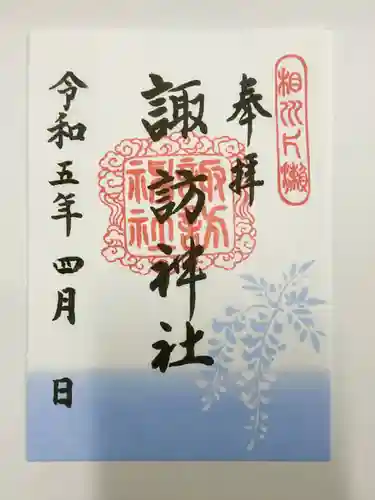 奉拝
諏訪神社
諏訪
神社
令和五年四月 日